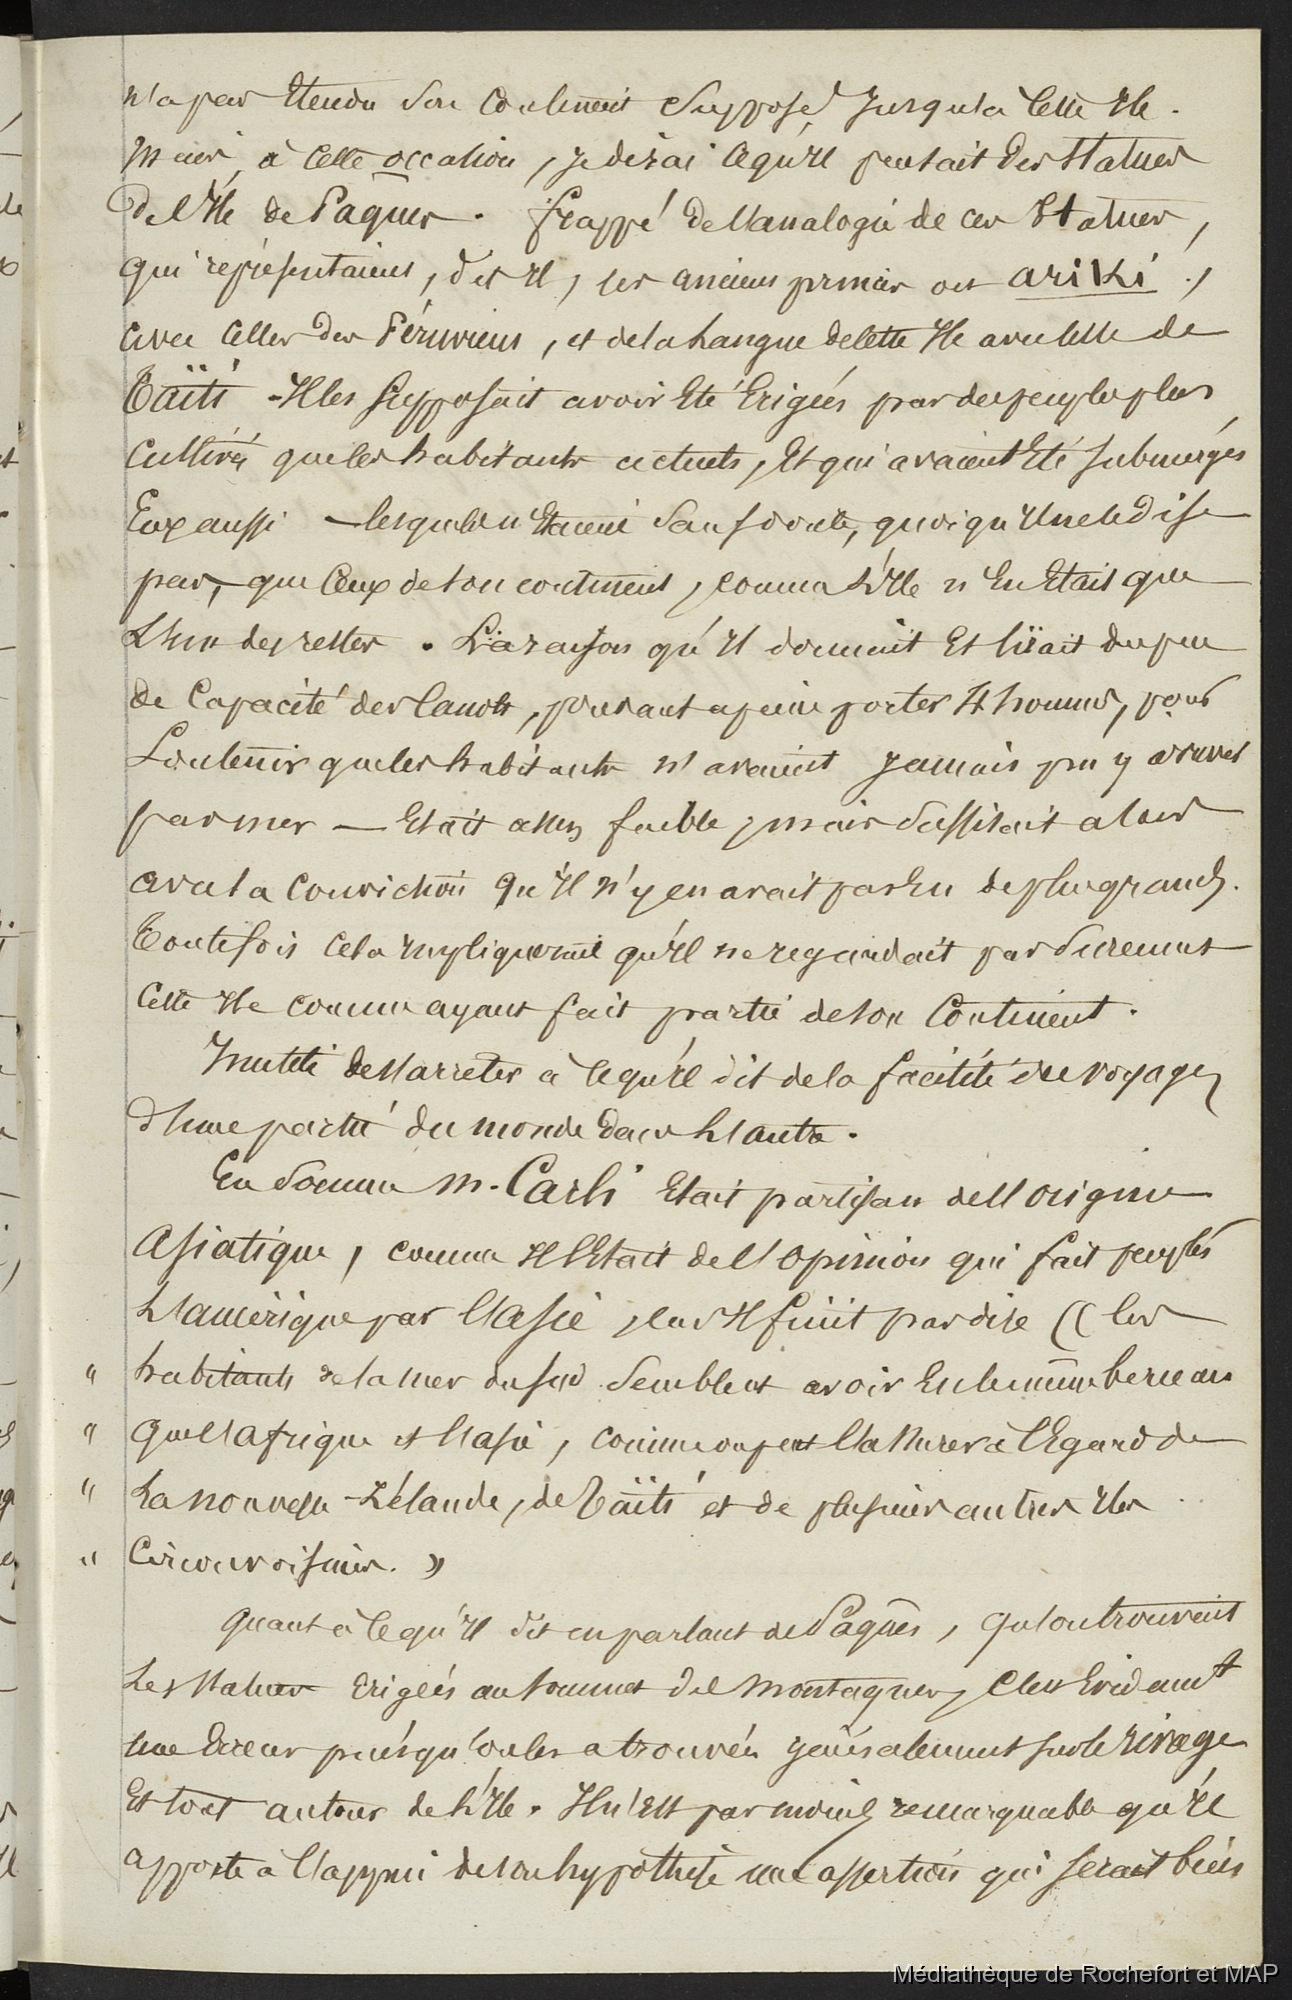 n'a pas Etendu son Continent Supposé Jusqu'à Cette Ile.
Mais, à Cette occasion, Je dirai Ce qu'Il pensait des Statues
De l'Ile de Pâques. frappé de l'analogie de ces Statues,
qui représentaient, dit Il, les anciens princes ou ariki,
avec Celles des Péruviens, et de la Langue de Cette Ile avec Celle de
Taïti - Il les Supposait avoir Eté Erigées par des peuples plus
Cultivés que les habitants actuels, Et qui avaient Eté Submergés
Eux aussi — lesquels n'Etaient Sans doute, quoiqu'Il ne le dise
pas, que Ceux de son continent, comme L'Ile n'En Etait que
L'un des restes. La raison qu'Il donnait Et tirait du peu
de Capacité des Canots, pouvant à peine porter 4 hommes, pour
Soutenir que les habitants n'avaient Jamais pu y arriver
par mer — Etait assez faible, mais Suffisait alors
avec la Conviction qu'Il n'y en avait pas Eu de plus grands.
Toutefois Cela Impliquerait qu'Il ne regardait pas Surement
Cette Ile comme ayant fait partie de son Continent.
Inutile de s'arreter à Ce qu'Il dit de la facilité des voyages
d'une partie du monde dans L'autre.
En Somme M. Carli Etait partisan de l'origine
Asiatique, comme Il l'Etait de l'opinion qui fait peupler
L'amérique par l'asie, Car Il finit par dire (( les
" habitants de la mer du Sud Semblent avoir Eu le même berceau
" que l'afrique et l'asie, comme on peut l'assurer à l'Egard de
" La nouvelle-Zélande, de Taïti et de plusieurs autres Iles
" Circonvoisines. »
Quant à Ce qu'Il dit en parlant de Pâques, que l'on trouvait
Les Statues Erigées au Sommet des montagnes, C'est Evidemt
une Erreur puisqu'on les a trouvées généralement sur le rivage
Et tout autour de L'Ile. Il n'Est pas moins remarquable qu'Il
apporte à l'appui de son hypothèse une assertion qui serait bien
Médiathèque de Rochefort et MAP